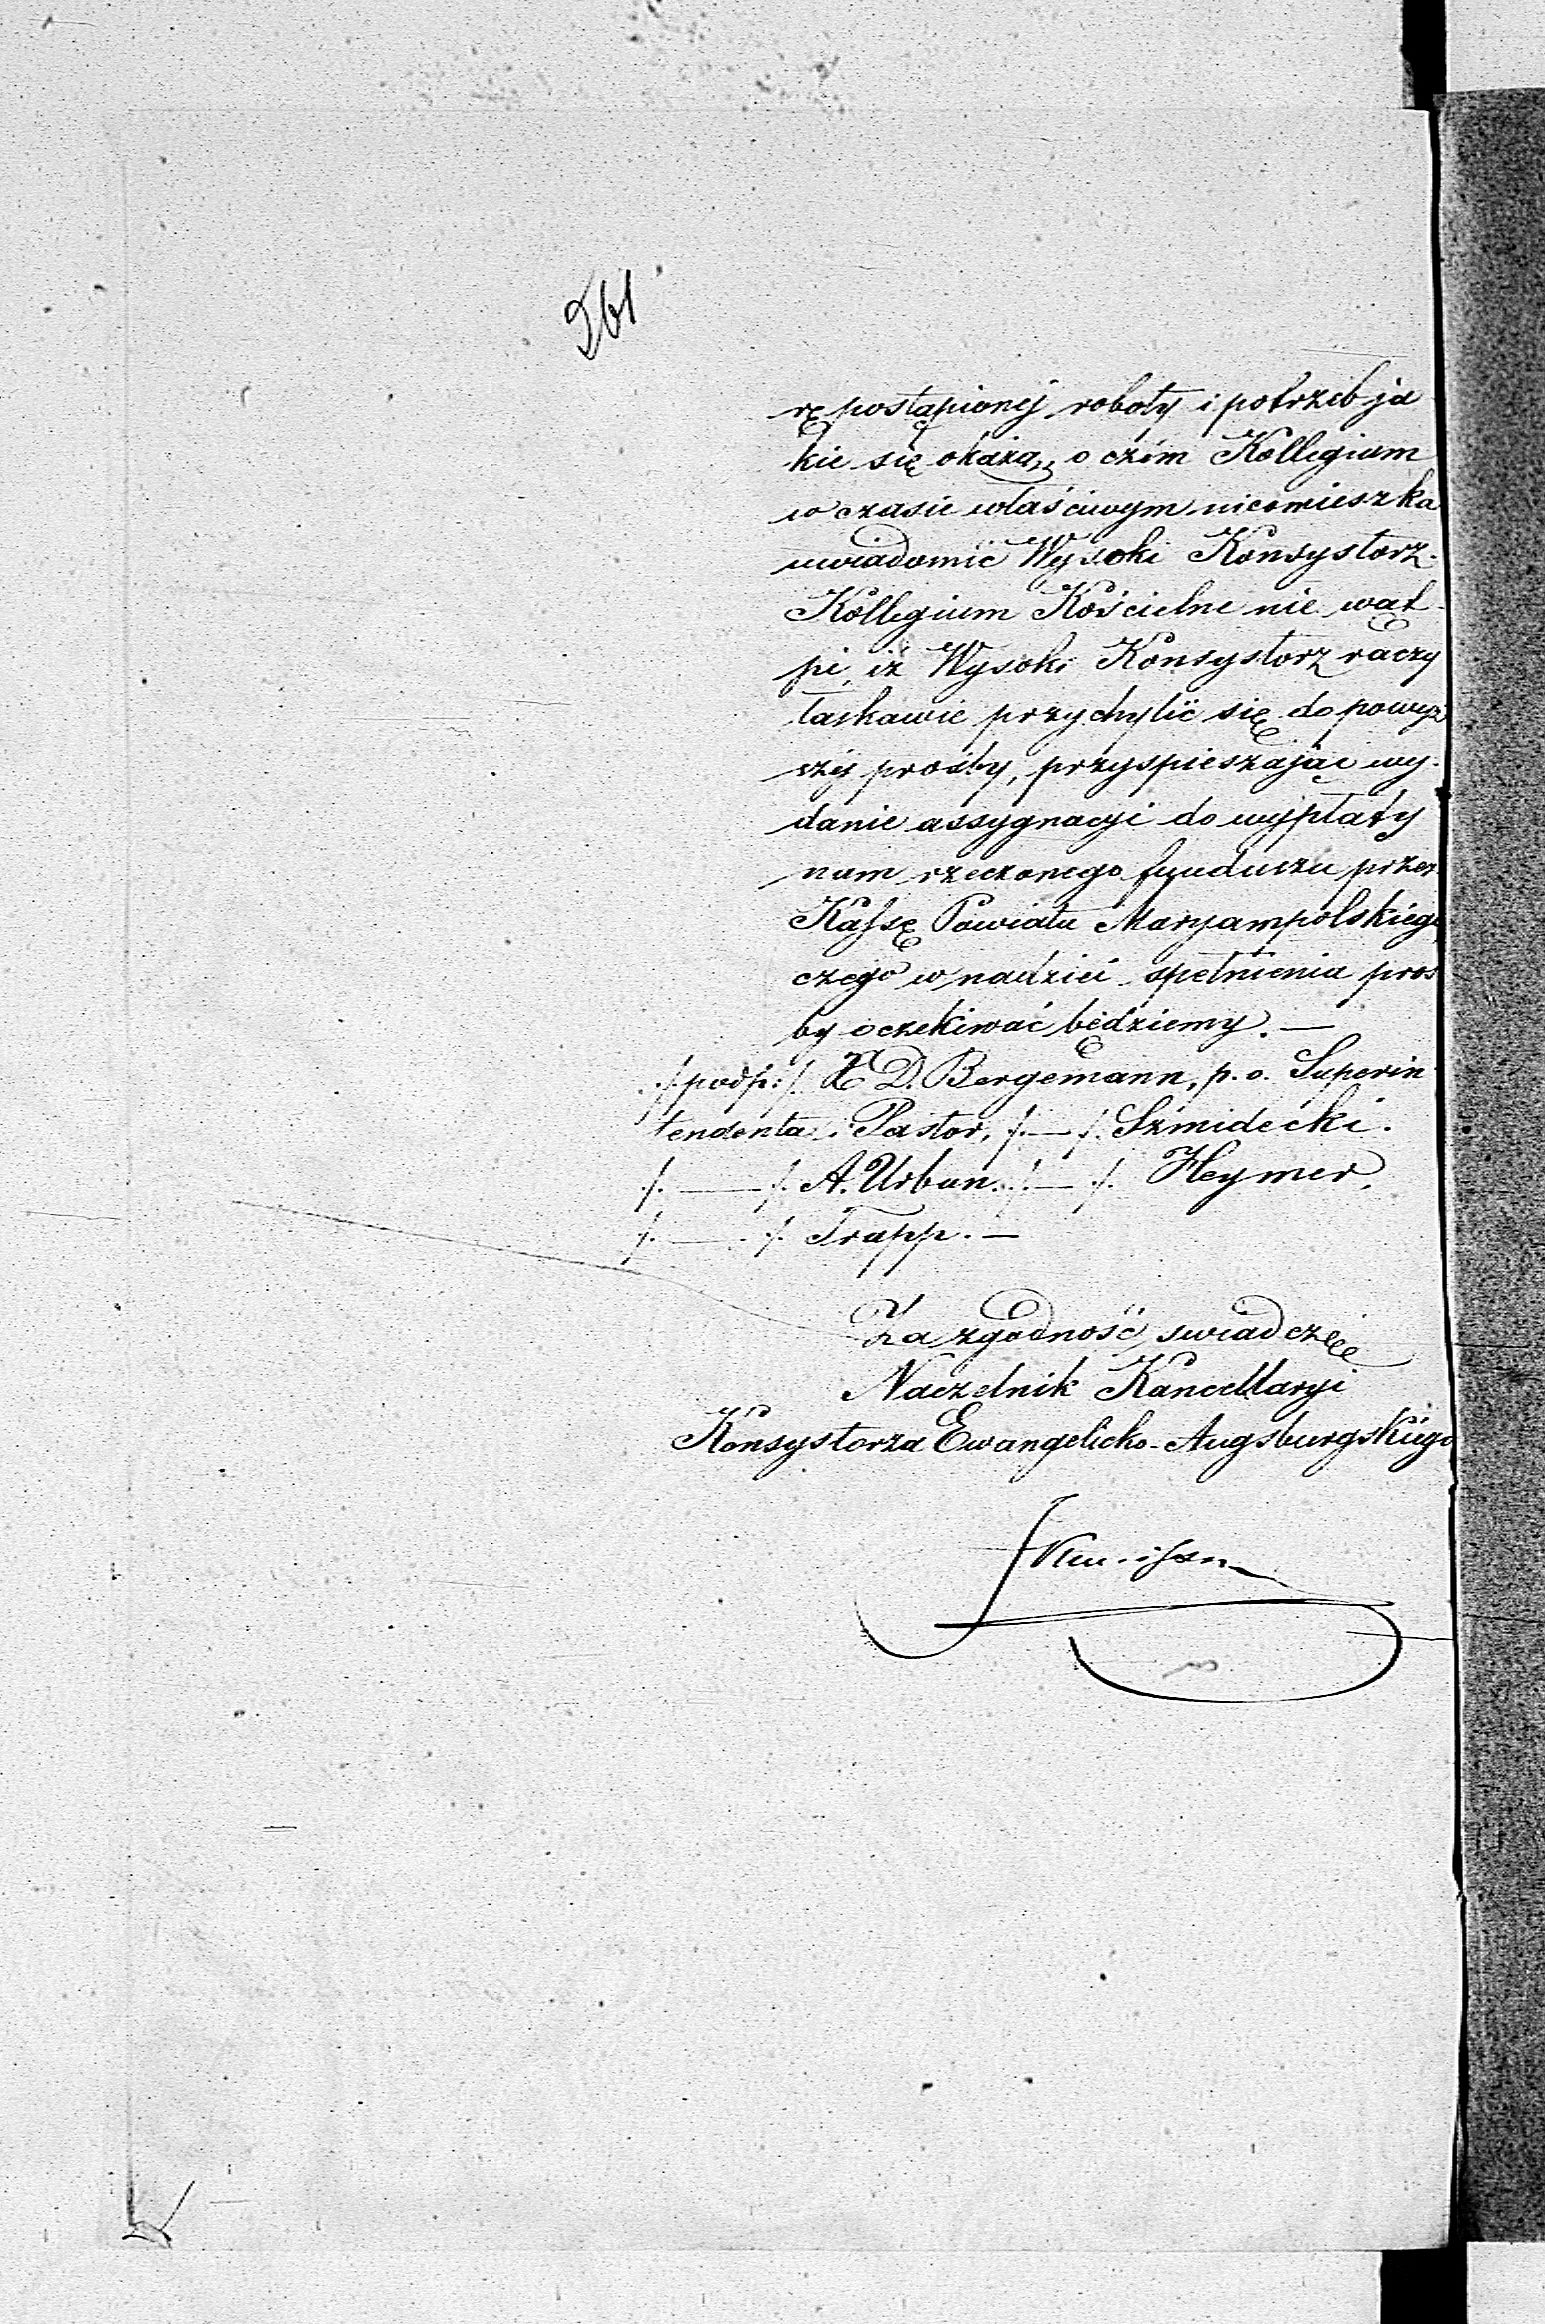 261
rę postąpionéj roboty i potrzeb ja
kie się okażą, o czém Kollegium
w czasie właściwym nieomieszka
uwiadomić Wysoki Konsystorz.
Kollegium Kościelne nie wąt-
pi, iż Wysoki Konsystorz raczy
łaskawie przychylić się do powyż
széj prośby, przyspieszając wy-
danie assygnacyi do wypłaty
nam rzeczonego funduszu przez
Kassę Powiatu Maryampolskiego
czego w nadziei spełnienia proś
by oczekiwać będziemy. —
/. podp: /. X D. Bergemann, p. o. Superin
tendenta i Pastor, /. — /. Szmidecki.
/. — /. A. Urban. /. — /. Heymer.
/. — /. Trapp. —
Za zgodność swiadczę
Naczelnik Kancellaryi
Konsystorza Ewangelicko-Augsburgskiego